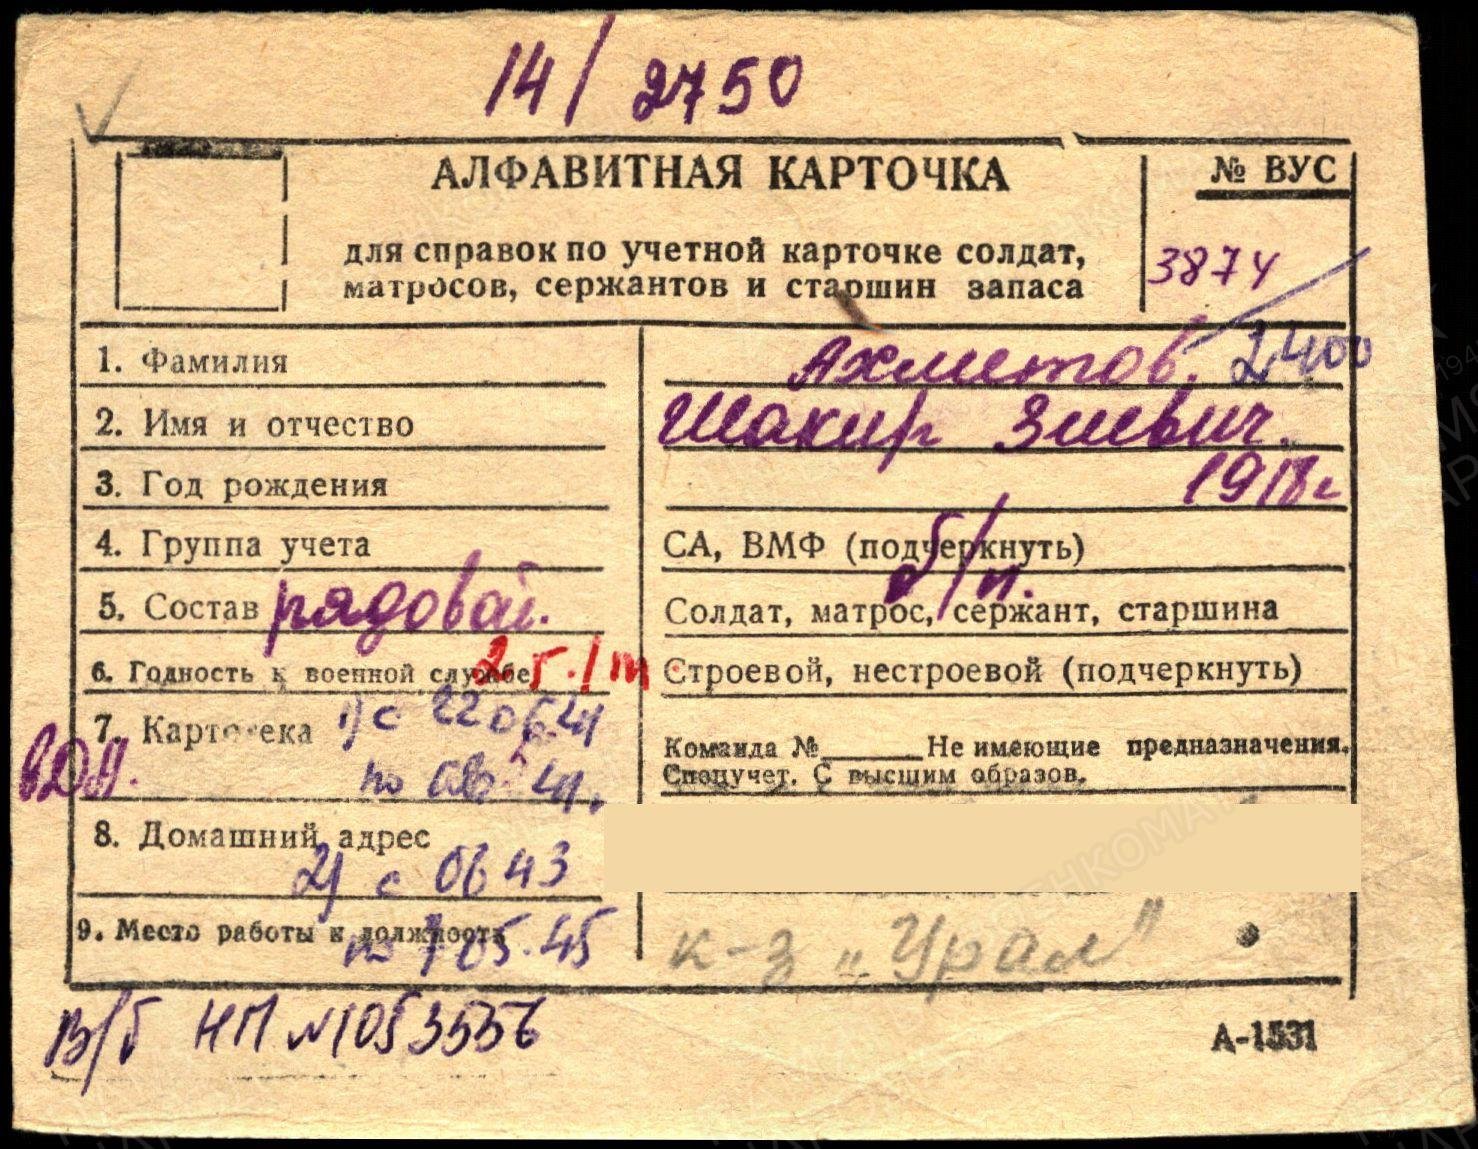 14/2750
АЛФАВИТНАЯ КАРТОЧКА
№ ВУС
для справок по учетной карточке солдат,
матросов, сержантов и старшин запаса
3874
1. Фамилия Ахметов. 2400
2. Имя и отчество Шакир Зиевич.
3. Год рождения 1918г
4. Группа учета СА, ВМФ (подчеркнуть)
б/п.
5. Состав рядовой. Солдат, матрос, сержант, старшина
6. Годность к военной службе 2 г./т Строевой, нестроевой (подчеркнуть)
7. Картотека 1) с 220641
Команда №______ Не имеющие предназначения.
Спецучет. С высшим образов.
по 08 41.
8. Домашний адрес
2) с 0643
9. Место работы и должность к-з „Урал"
по 05.45
В/б НП №1053536
А-1531